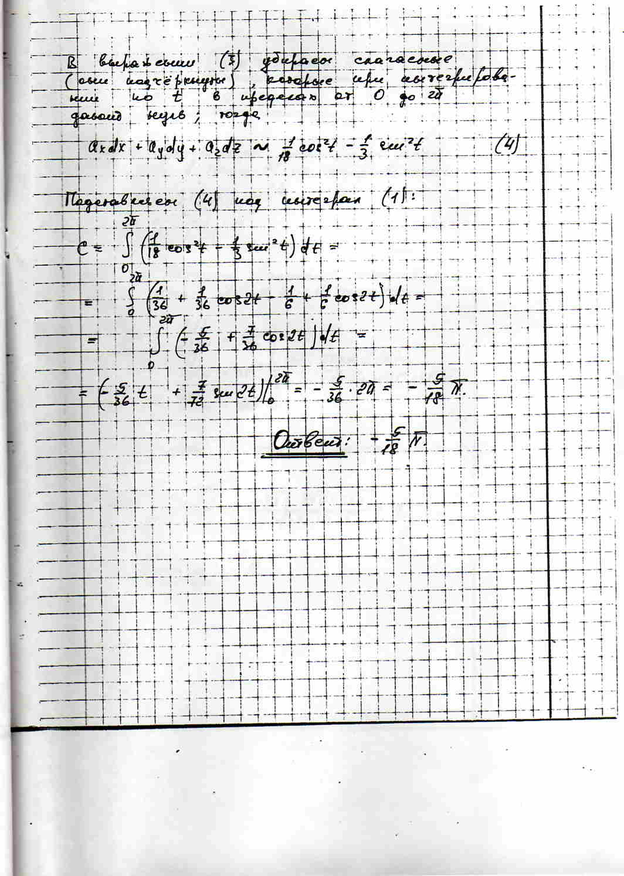 В выражении (3) убираем слагаемые
(они подчёркнуты), которые при интегрирова-
нии по t в пределах от 0 до 2π
дают нуль; тогда
aₓdx + a_y dy + a_z dz ~ 1/18 cos²t - 1/3 sin²t (4)
Подставляем (4) под интеграл (1):
C = ∫₀^2π (1/18 cos²t - 1/3 sin²t) dt =
= ∫₀^2π (1/36 + 1/36 cos2t - 1/6 + 1/6 cos2t) dt =
= ∫₀^2π (-5/36 + 7/36 cos2t) dt =
= (-5/36 t + 7/72 sin2t)|₀^2π = -5/36 · 2π = -5/18 π.
Ответ: -5/18 π.